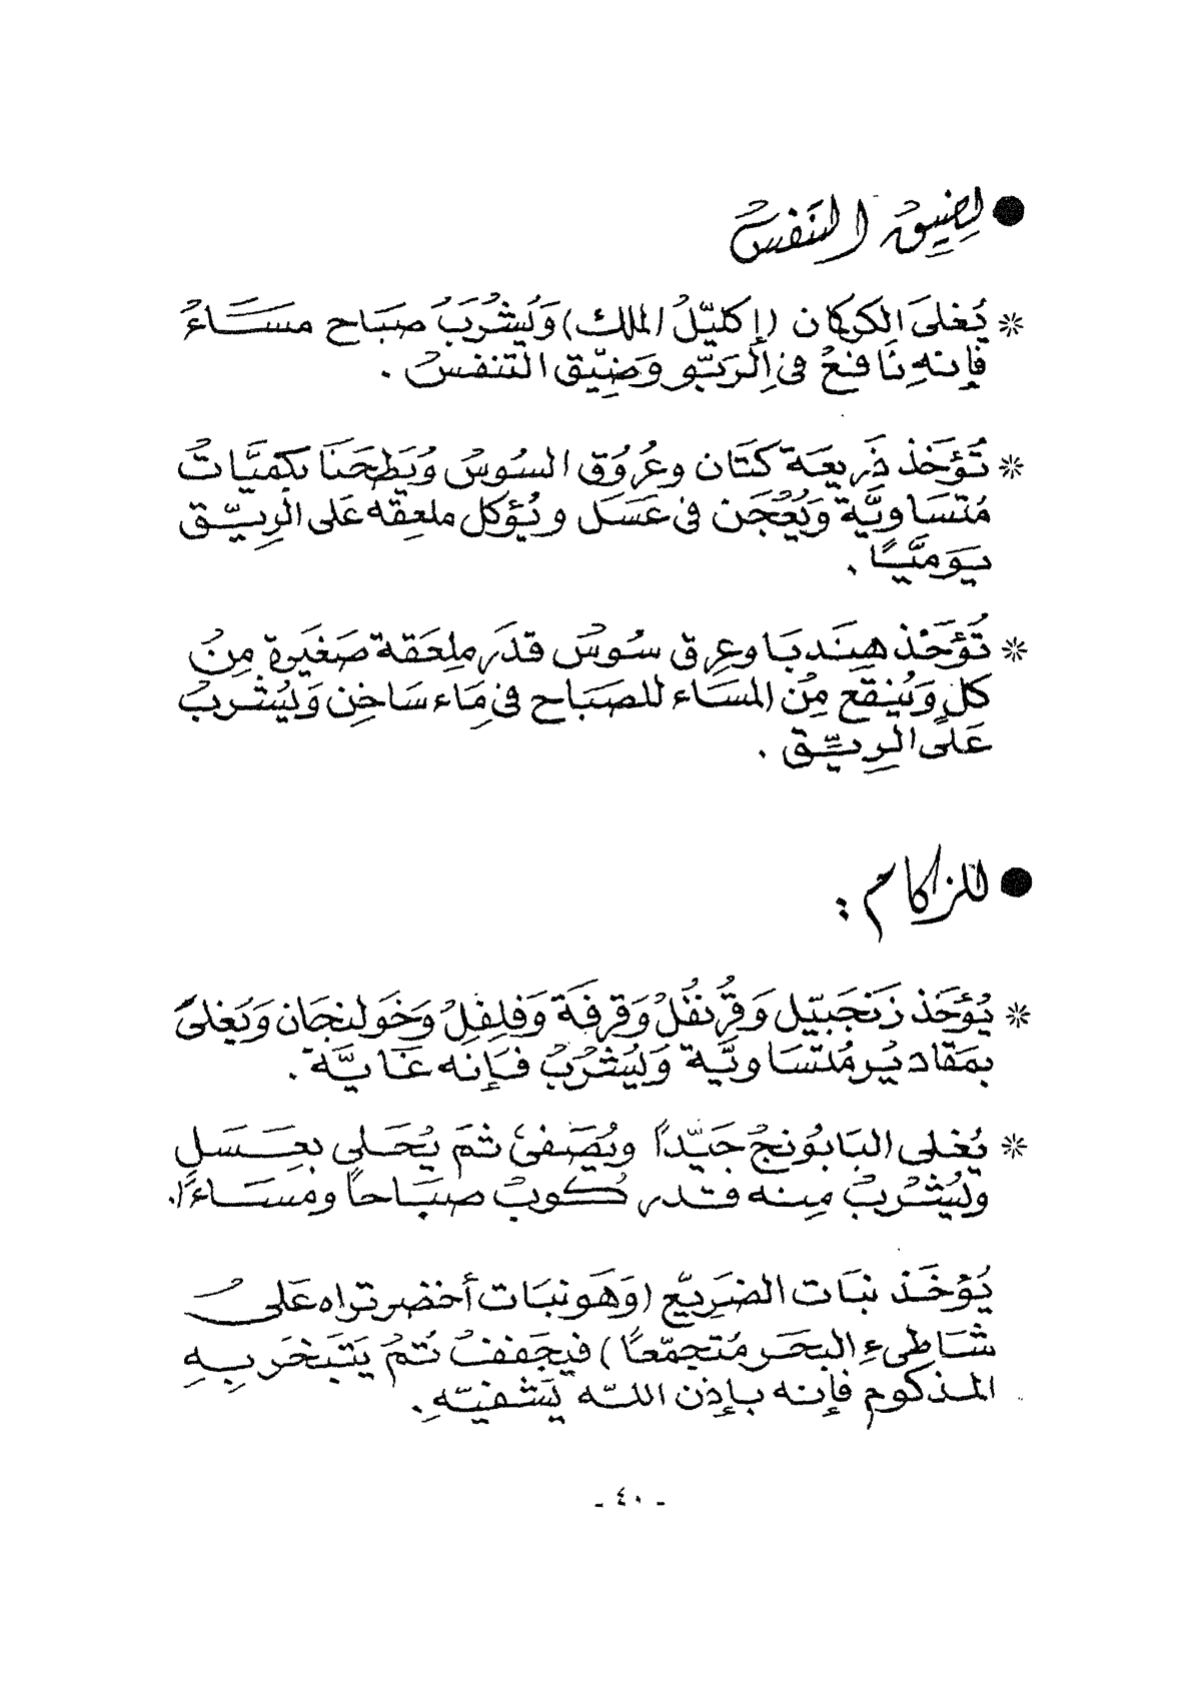 ● لِضِيِقُ النَفسُ
* يُغلىَ الكركمان (إكليّلُ الملك) وَيُشرُبَُ صبَاح مسَاءُ
فإنهِ نَافعُ في الرَبّو وَضِيّق التنفسُ .
* تُؤخَذ ذَريعَة كتَان وعُرُوُق السُوسُ ويُطحَنَا بكميَّاتُ
مُتسَاويَّة وَيُعُجَن في عَسَل ويُؤكل ملعقه عَلى الريِّق
يَومَيًا .
* تُؤَخَذ هِنَدبَا وعِرق سُوسُ قدَر ملِعَقة صَغيَرة مِنُ
كل وَيُنقَع مِنُ المسَاء للصبَاح في مَاء سَاخِن وَيُشربُ
عَلىَ الريِّق .
● للزكام :
* يُؤخَذ زَنجَبيّل وَقرُنفُلُ وَقرفَة وَفلِفلُ وَخَولنجَان وَيَغلىَ
بمَقاديُر مُتسَاويَّة وَيُشرُبُ فَإنه غَايَّة .
* يُغلى البَابُونجُ جَيّداً ويُصَفىَ ثمَ يُحَلى بعَسَلِ
ويُشُربُ مِنه قدر كُوبُ صبَاحاً ومسَاءً.
يُؤخَذ نبَات الضَرِيّع (وَهَو نبَات أخضر تراه عَلىُ
شَاطِىءِ البحَر مُتجمّعاً) فيجَففُ ثمُ يَتبَخَر بِهِ
المذكوم فإنه بإذن اللّه يَشفيّهِ.
- ٤٠ -